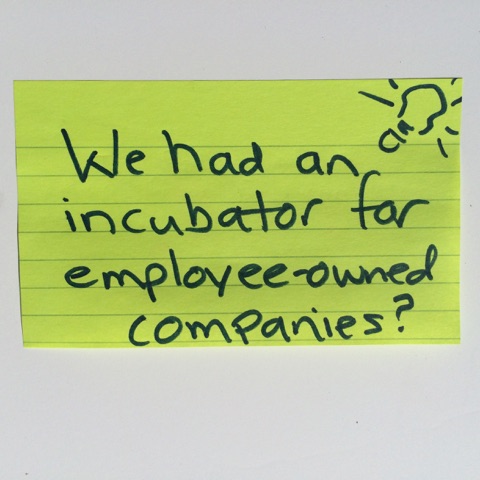 We had an
incubator for
employee-owned
companies?